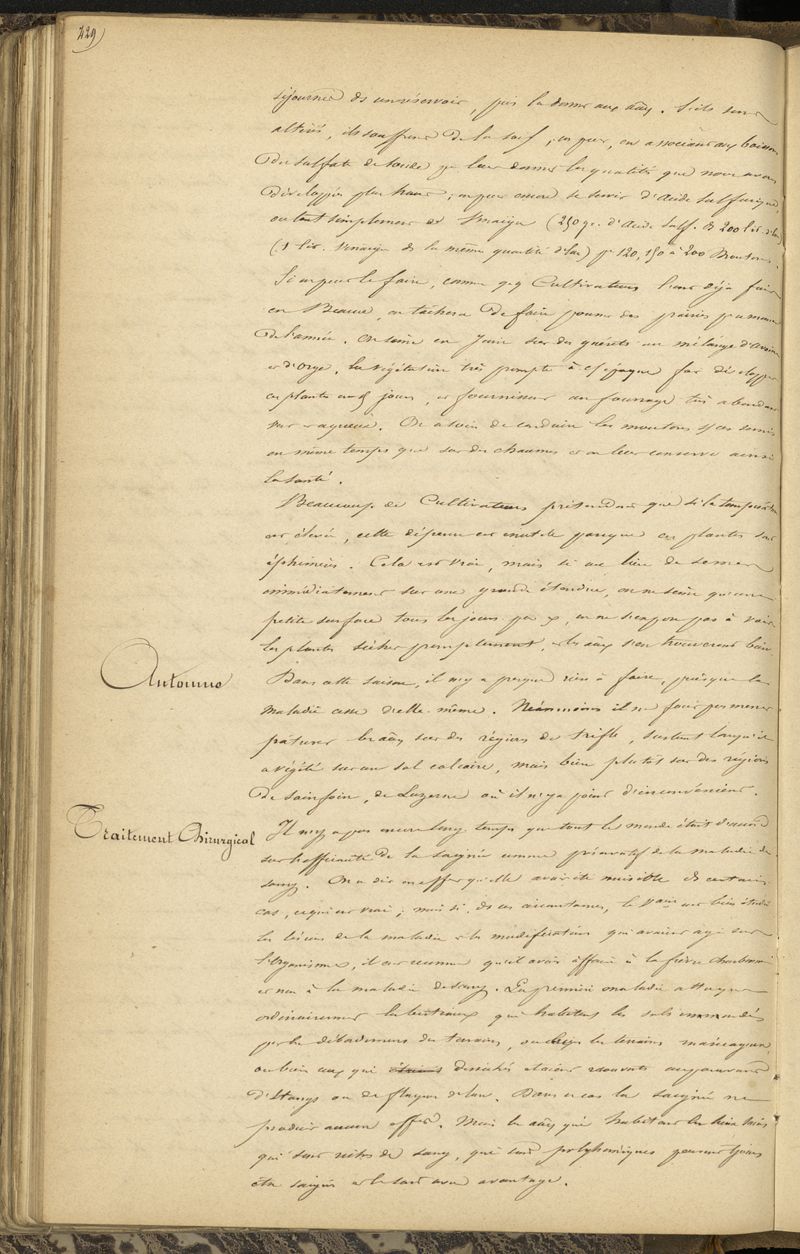 229
séjournée ds un réservoir, puis la donner aux aux. S'ils sont
altérés, ils souffrent de la soif ; on peut, en associant aux boissons
du sulfate de soude pr leur donner les qualités que nous avons
développées plus haut ; on peut encore se servir d'acide sulfurique,
ou tout simplement de Vinaigre (250 gr. d'acide sulf. ds 200 lit. d'eau)
(1 lit. Vinaigre ds la même quantité d'eau) pr 120, 150 à 200 Moutons.
Si on peut le faire, comme qq Cultivateurs l'ont déjà fait
en Beauce, on tâchera de faire pousser des prairies
de l'année. On sème en Juin sur des guérets un mélange d'avoine
et d'orge. La végétation très prompte à cette époque fait développer
ces plantes en jours, et fournissent un fourrage très abondant
vert et aqueux. On a soin de conduire les moutons sur ces semis
en même temps que sur des chaumes et on leur conserve ainsi
la santé.
Beaucoup de Cultivateurs prétendent que si la température
est élevée, cette dépense est inutile parceque ces plantes sont
éphémères. Cela est vrai, mais si au lieu de semer
immédiatement sur une grande étendue, on ne sème qu'une
petite surface tous les jours, on ne s'expose pas à voir
les plantes sécher promptement, et les aux s'en trouveront bien.
Automne
Dans cette saison, il n'y a presque rien à faire, puisque la
maladie cesse d'elle-même. Néanmoins il ne faut pas mener
paturer les aux sur des régains de trèfle, surtout lorsqu'il
a végété sur un sol calcaire, mais bien plutôt sur des régains
de sainfoin, de Luzerne où il n'y a point d'inconvénient.
Traitement Chirurgical
Il n'y a pas encore longtemps que tout le monde était d'accord
sur l'efficacité de la saignée comme préservatif de la maladie de
sang. On a dit en effet qu'elle avait été nuisible ds certains
cas, ce qui est vrai ; mais si, ds ces circonstances, le Vaire eut bien étudié
les lésions de la maladie et les modificateurs qui avaient agi sur
l'Organisme, il eut reconnu qu'il avait affaire à la fièvre charbonneuse
et non à la maladie de sang. La première maladie attaque
ordinairement les bestiaux qui habitent les sols inondés
par les débordements des terrains, ou bien les terrains marécageux,
ou bien ceux qui desséchés étaient recouverts auparavant
d'étangs ou de flaques d'eau. Dans ce cas la saignée ne
produit aucun effet. Mais les aux qui habitent les lieux
qui sont riches de sang, qui sont polyhémiques peuvent tjours
être saignés et le sont avec avantage.